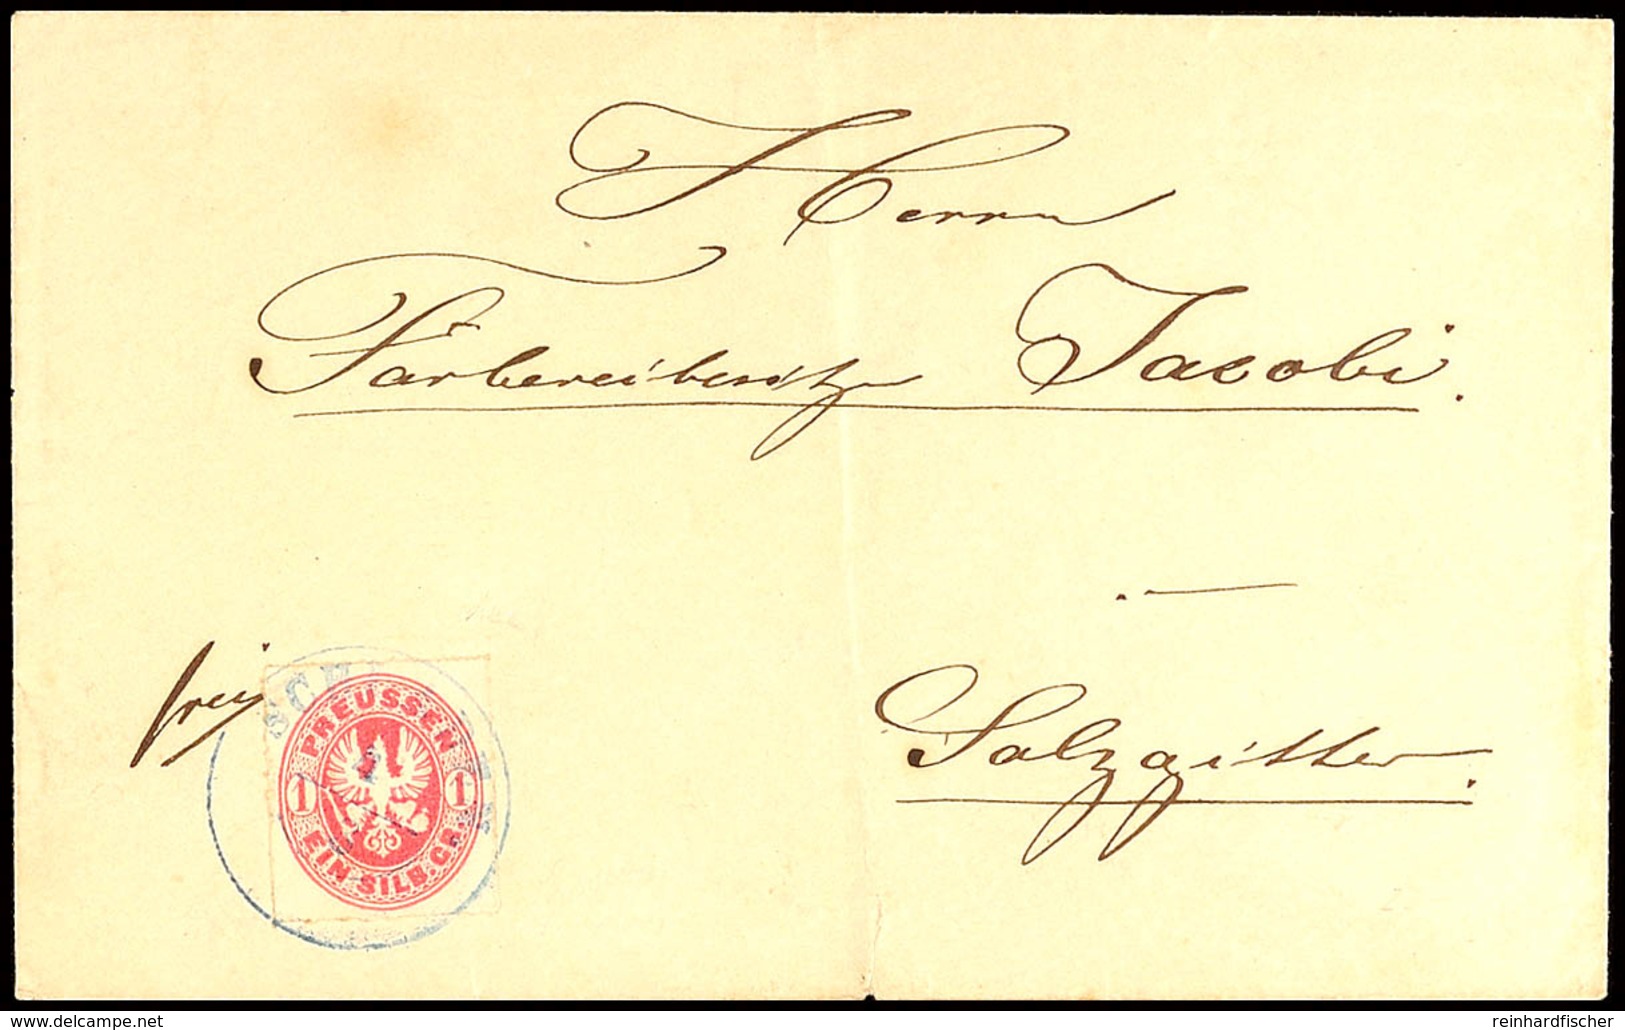 Herrn
Färbereibesitzer Jacobi.
frei
Salzgitter.
PREUSSEN
1 1
EIN SILB. GR.
www.delcampe.net
reinhardfischer